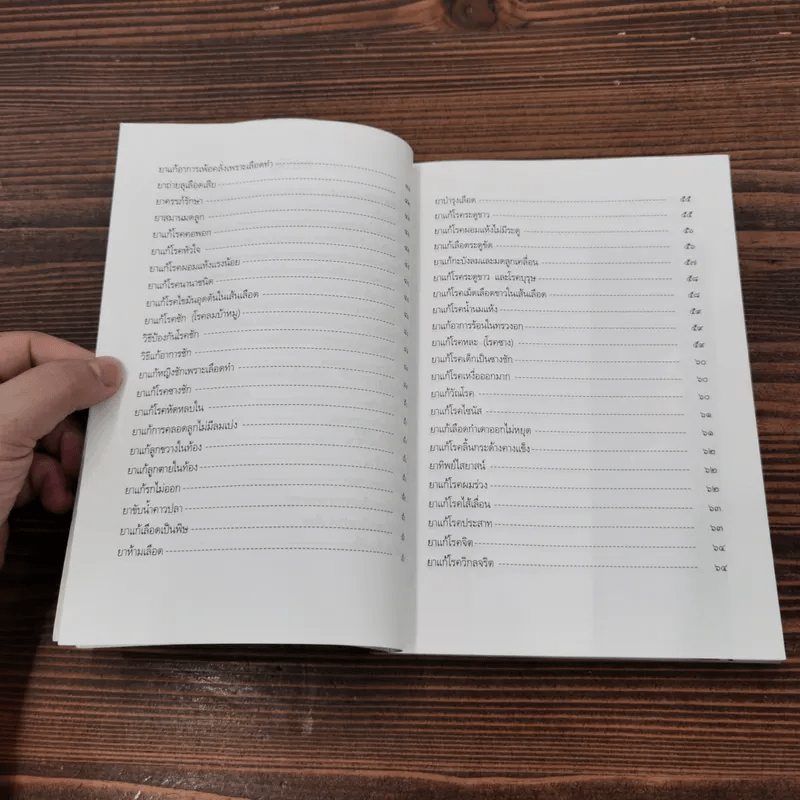 ยาแก้อาการเพ้อคลั่งเพราะเลือดทำ
ยาถ่ายลุเลือดเสีย
ยาครรภ์รักษา
ยาสมานมดลูก
ยาแก้โรคคอพอก
ยาแก้โรคหัวใจ
ยาแก้โรคผอมแห้งแรงน้อย
ยาแก้โรคนานาชนิด
ยาแก้โรคไขมันอุดตันในเส้นเลือด
ยาแก้โรคชัก (โรคลมบ้าหมู)
วิธีป้องกันโรคชัก
วิธีแก้อาการชัก
ยาแก้หญิงชักเพราะเลือดทำ
ยาแก้โรคซางชัก
ยาแก้โรคหัดหลบใน
ยาแก้การคลอดลูกไม่มีลมเบ่ง
ยาแก้ลูกขวางในท้อง
ยาแก้ลูกตายในท้อง
ยาแก้รกไม่ออก
ยาขับน้ำคาวปลา
ยาแก้เลือดเป็นพิษ
ยาห้ามเลือด
ยาบำรุงเลือด ๕๕
ยาแก้โรคระดูขาว ๕๕
ยาแก้โรคผอมแห้งไม่มีระดู ๕๖
ยาแก้เลือดระดูขัด ๕๖
ยาแก้กะบังลมและมดลูกเคลื่อน ๕๗
ยาแก้โรคระดูขาว และโรคบุรุษ ๕๘
ยาแก้โรคเม็ดเลือดขาวในเส้นเลือด ๕๘
ยาแก้โรคน้ำนมแห้ง ๕๙
ยาแก้อาการร้อนในทรวงอก ๕๙
ยาแก้โรคหละ (โรคซาง) ๕๙
ยาแก้โรคเด็กเป็นซางชัก ๖๐
ยาแก้โรคเหงื่อออกมาก ๖๐
ยาแก้วัณโรค ๖๐
ยาแก้โรคไซนัส ๖๑
ยาแก้เลือดกำเดาออกไม่หยุด ๖๑
ยาแก้โรคลิ้นกระด้างคางแข็ง ๖๒
ยาทิพย์ไสยาสน์ ๖๒
ยาแก้โรคผมร่วง ๖๒
ยาแก้โรคไส้เลื่อน ๖๓
ยาแก้โรคประสาท ๖๓
ยาแก้โรคจิต ๖๔
ยาแก้โรควิกลจริต ๖๔